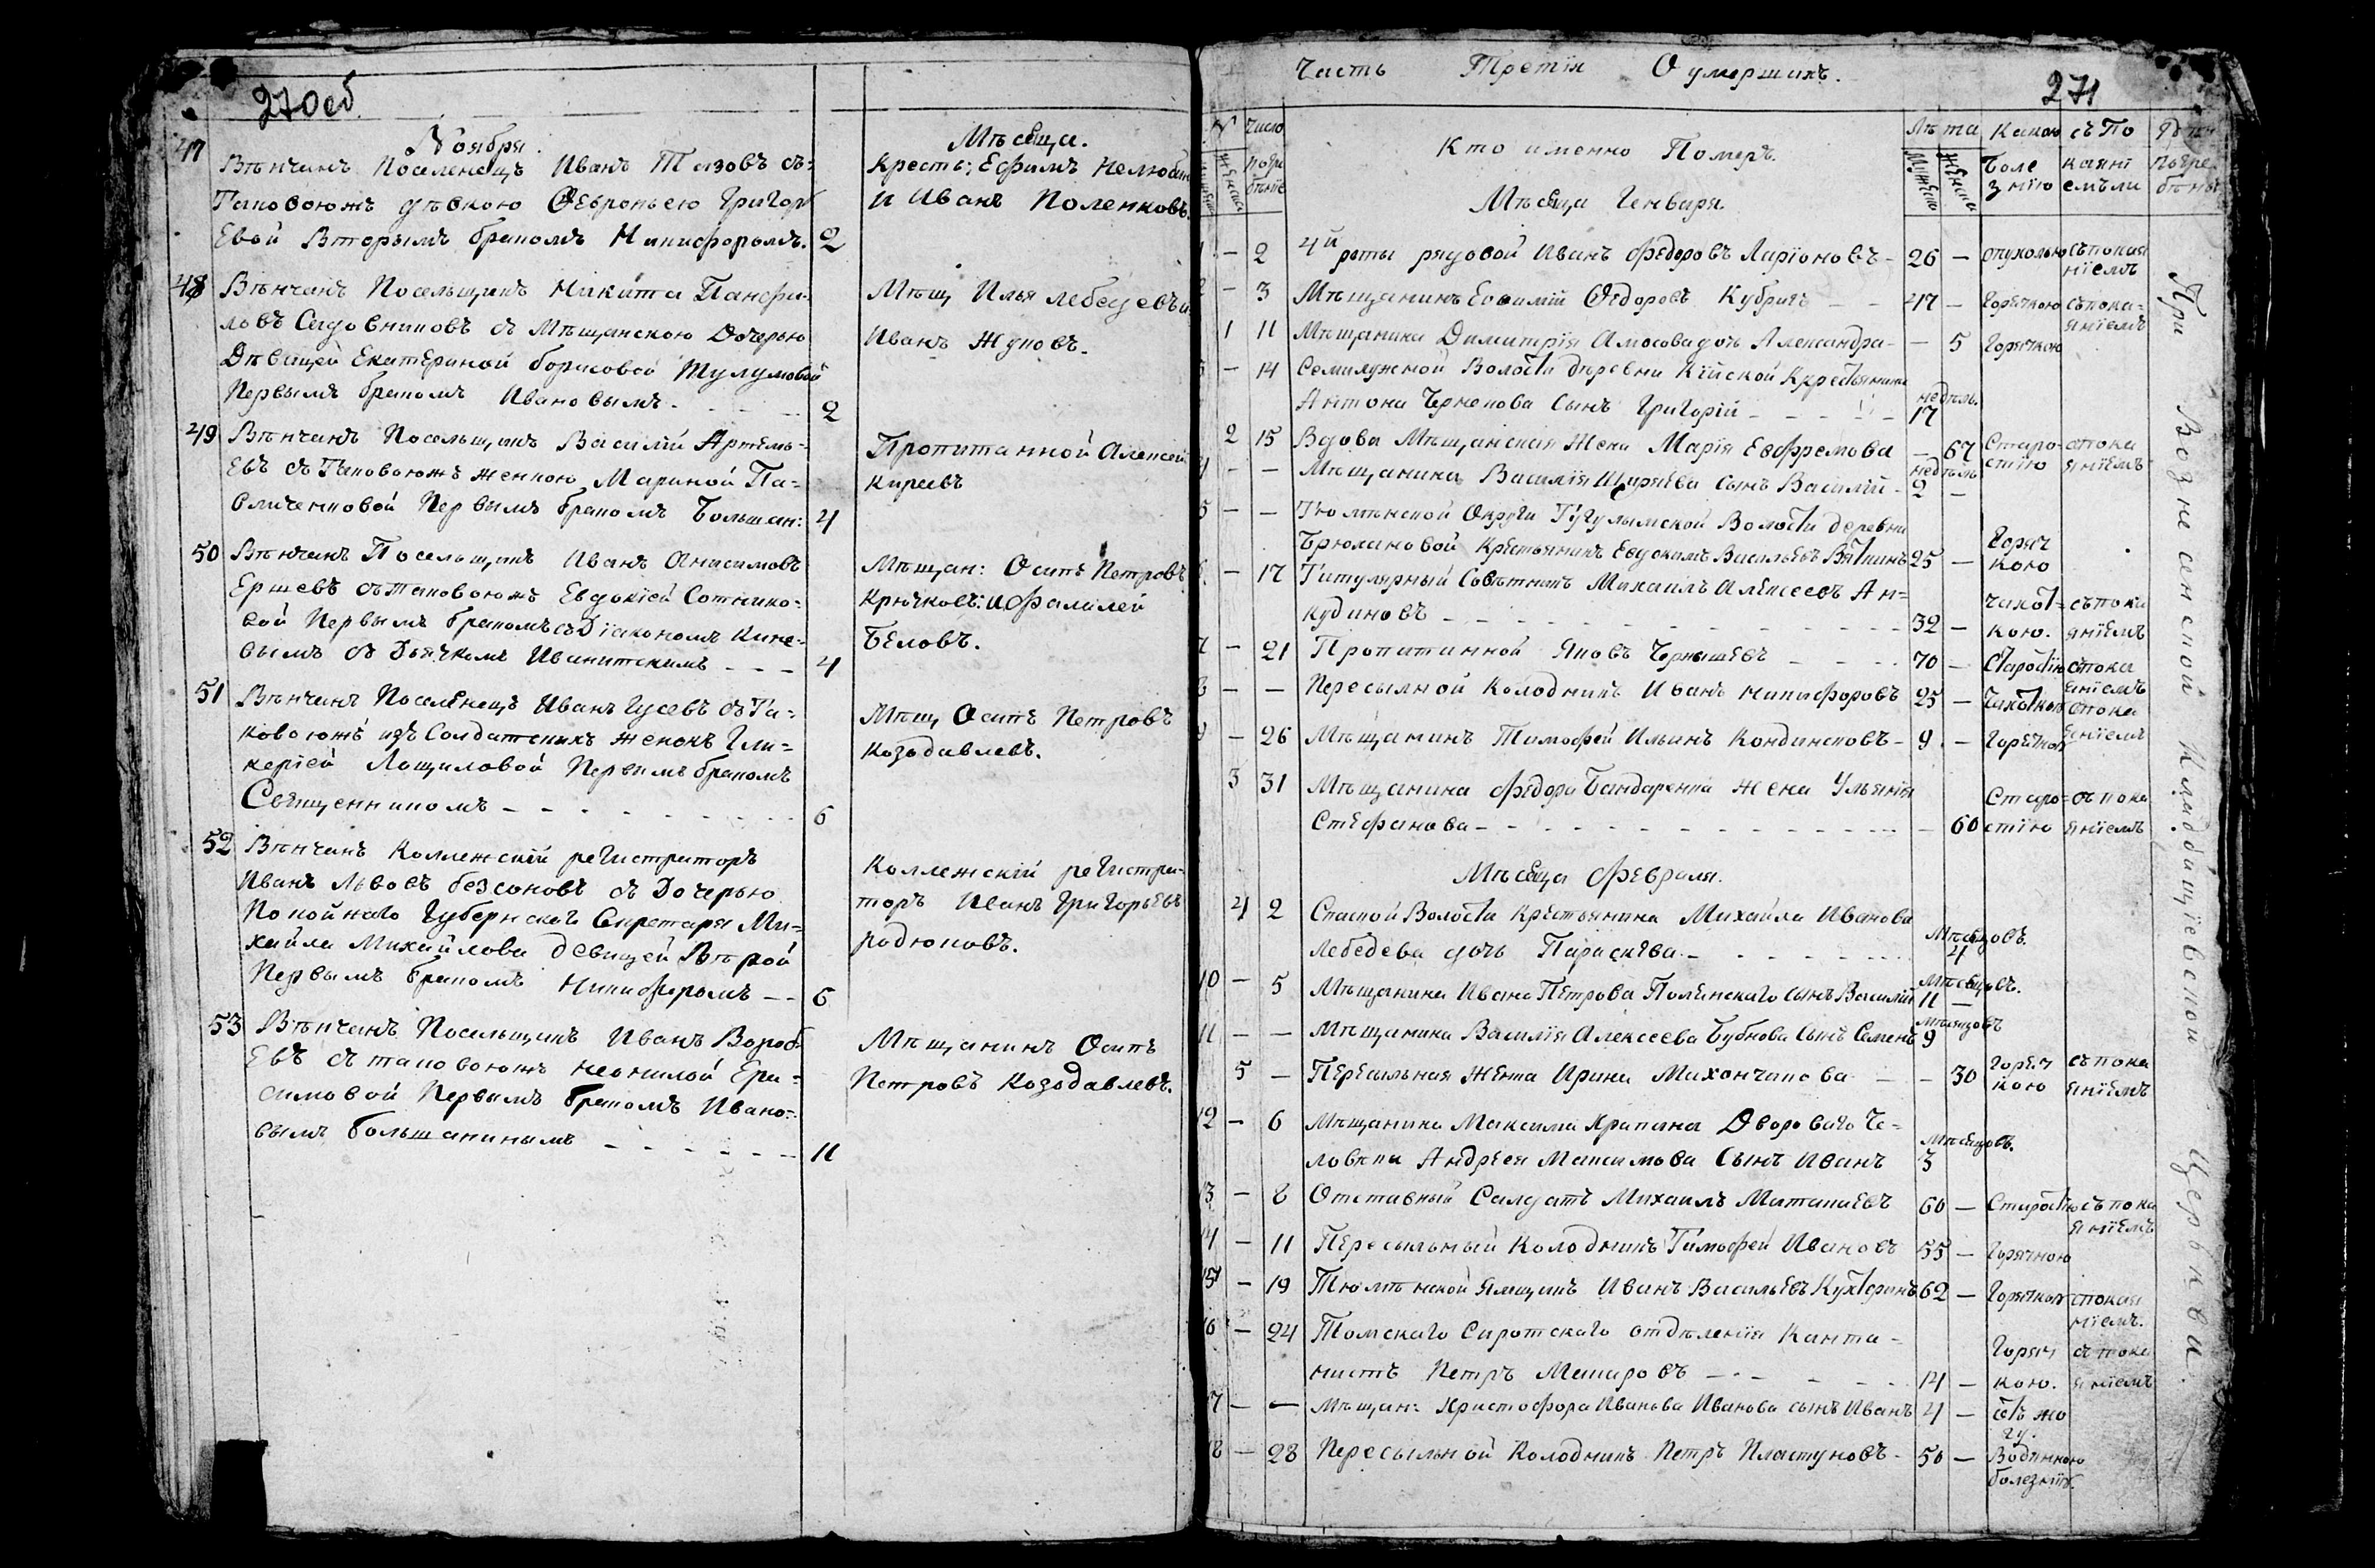 270об
Ноября Мѣсяца.
47 Вѣнчанъ Поселенецъ Иванъ Тазовъ съ
таковоюжъ дѣвкою Февроньею Григорь
евой вторымъ бракомъ Никифоромъ. 2
Кресть: Ефимъ Нелюбин
и Иванъ Поленковъ.
48 Вѣнчанъ Посельщикъ Никита Панфи-
ловъ Садовниковъ съ Мѣщанскою дочерью
Дѣвицей Екатериной борисовой Тулумовой
Первымъ бракомъ Ивановымъ. 2
Мѣщ Илья лебедевъ и
Иванъ Жуковъ.
49 Вѣнчанъ Посельщикъ Василій Артемь-
евъ съ таковоюжъ женкою Мариной Па-
вличенковой Первымъ бракомъ Большан: 4
Пропитанной Алексей
Киреевъ
50 Вѣнчанъ Посельщикъ Иванъ Анисимовъ
Ершевъ съ таковоюжъ Евдокіей Сотнико-
вой Первымъ бракомъ съ Діакономъ Кине-
вымъ съ Дьячкомъ Иванитскимъ - - - 4
Мѣщан: Осипъ Петровъ
Крючковъ: и Фалилей
Беловъ.
51 Вѣнчанъ Поселенецъ Иванъ Гусевъ съ та-
ковоюжъ изъ Солдатскихъ женокъ Гли-
керіей Лощиловой Первымъ бракомъ
Священникомъ - - - 6
Мѣщ Осипъ Петровъ
Козодавлевъ.
52 Вѣнчанъ Коллежскій регистраторъ
Иванъ Львовъ безсоновъ съ Дочерью
Покойнаго Губернскаго Секретаря Ми-
хайла Михайлова девицей Вѣрой
Первымъ бракомъ Никифоромъ - - 6
Коллежскій регистра-
торъ Иванъ Григорьевъ
родюковъ.
53 Вѣнчанъ Посельщикъ Иванъ Вороб
евъ съ таковоюжъ неонилой Ера-
симовой Первымъ бракомъ Ивано-
вымъ большанинымъ - - - 11
Мѣщанинъ Осипъ
Петровъ Козодавлевъ.
Часть Третія О умершихъ.
271
Число погребенія Кто именно Померъ. Лѣта Какою Болезнію съ Покаяніемъ ли
Мѣсяца Генваря.
1 - 2 4й роты рядовой Иванъ Федоровъ Ларіоновъ - 26 - опухолью съ покаяніемъ
2 - 3 Мѣщанинъ Евѳимій Федоровъ Кубринъ - - 47 - Горячкою съ покаяніемъ
1 11 Мѣщанина Димитрія Амосова дочь Александра - - 5 Горячкою
3 - 14 Семилужной Волости деревни Кійской Крестьянина
Антона Черненова Сынъ Григорій - - - недѣль. 17
2 15 Вдова Мѣщанская Жена Марія Евфремова - 67 Старостію спокаяніемъ
4 - - Мѣщанина Василія Ширяева Сынъ Василій - недѣль 2 -
5 - - Тюменской Округи Тугулымской Волости деревни
Брюхановой Крестьянинъ Евдокимъ Васильевъ Вяткинъ 25 - Горячкою
6 - 17 Титулярный Совѣтникъ Михаилъ Алексеевъ Ан-
кудиновъ - - - 32 - чахоткою. съ покаяніемъ
7 - 21 Пропитанной Яковъ Чернышевъ - - - 70 - Старостію съ покаяніемъ
8 - - Пересылной Колодникъ Иванъ Никифоровъ 25 - Чахоткою спокаяніемъ
9 - 26 Мѣщанинъ Тимофей Ильинъ Кондинсковъ - 9 - Горячкою
3 31 Мѣщанина Федора Бандаренка жена Ульянія
Стефанова - - - 60 Старостію съ покаяніемъ
Мѣсяца Февраля.
4 2 Спаской Волости Крестьянина Михайла Иванова
Лебедева дочь Параскева. - - - Мѣсяцовъ. 4
10 - 5 Мѣщанина Ивана Петрова Поленскаго сынъ Василій Мѣсяцовъ. 11 -
11 - - Мѣщанина Василія Алексеева Бубнова Сынъ Семенъ Мѣсяцовъ 9
5 - Пересыльная Жена Ирина Махончанова - - 30 Горячкою съ покаяніемъ
12 - 6 Мѣщанина Максима Крапина Двороваго Че-
ловека Андрея Максимова Сынъ Иванъ Мѣсяцовъ. 3
13 - 8 Отставный Салдатъ Михаилъ Матакаевъ 60 - Старостію съ покаяніемъ
14 - 11 Пересыльный Колодникъ Тимофей Ивановъ 55 - Горячкою
15 - 19 Тюменской Ямщикъ Иванъ Васильевъ Кухтеринъ 62 - Горячкою спокаяніемъ.
16 - 24 Томскаго Сиротскаго отдѣленія Канта-
нистъ Петръ Макаровъ - - - 14 - Горячкою. съ покаяніемъ
17 - - Мѣщан: Христофора Иванова Иванова сынъ Иванъ 4 -
18 - 28 Пересыльной Колодникъ Петръ Пластуновъ - 50 - Водяною болезнію.
При Вознесенской Кладбищевской Церкви.